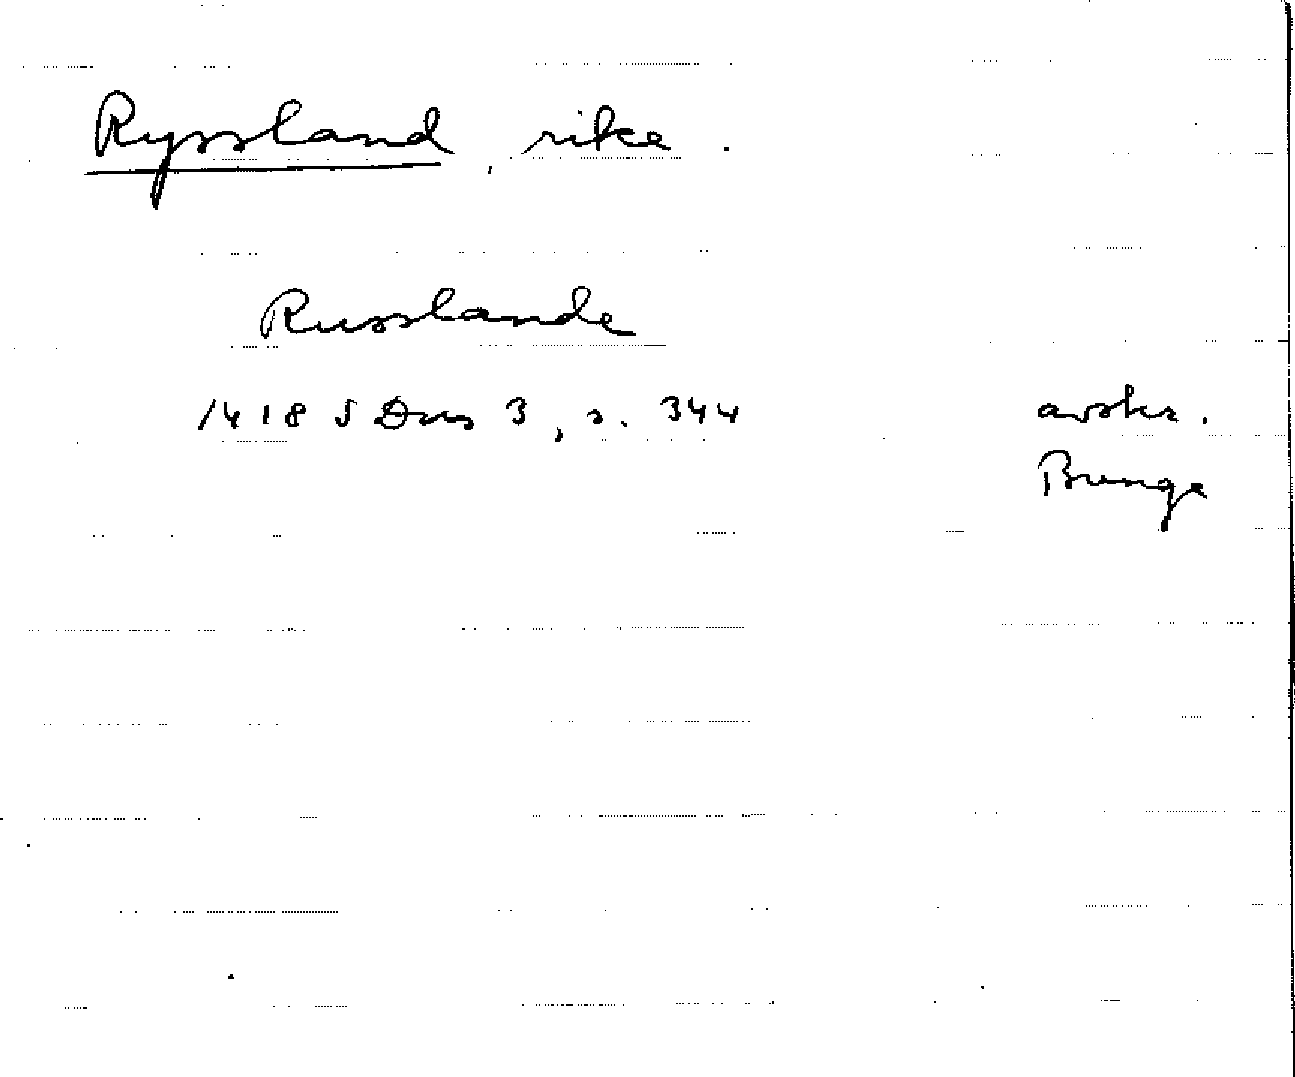 Ryssland, rike.
Russlande
1418 SDns 3, s. 344 avskr.
Bunge